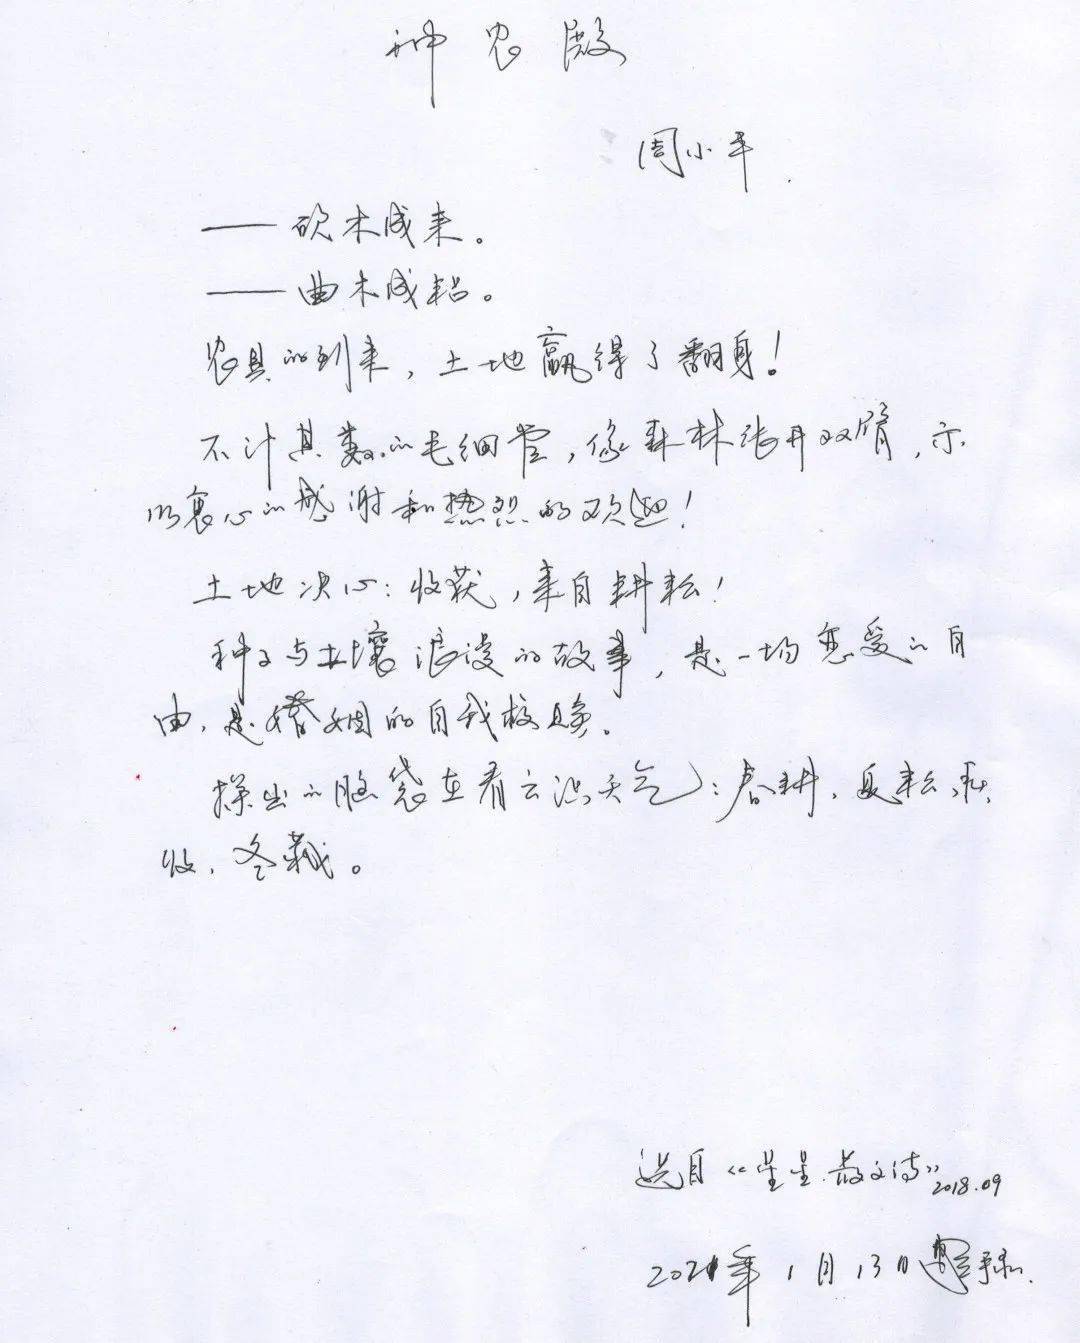 神农殿
周小平
——砍木成耒。
——曲木成耜。
农具的到来，土地赢得了翻身！
不计其数的毛细管，像森林张开双臂，示
以衷心的感谢和热烈的欢迎！
土地决心：收获，来自耕耘！
种子与土壤浪漫的故事，是一场恋爱的自
由，是婚姻的自我校验。
探出的脑袋在看云识天气：春耕，夏耘，秋
收，冬藏。
选自《星星·散文诗》2018.09
2021年1月13日